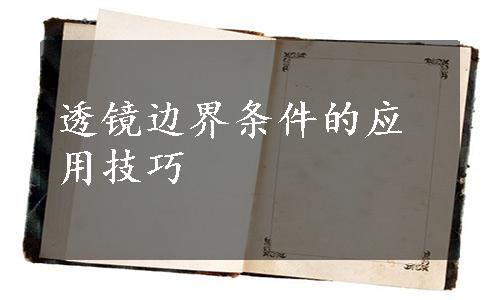 透镜边界条件的应
用技巧